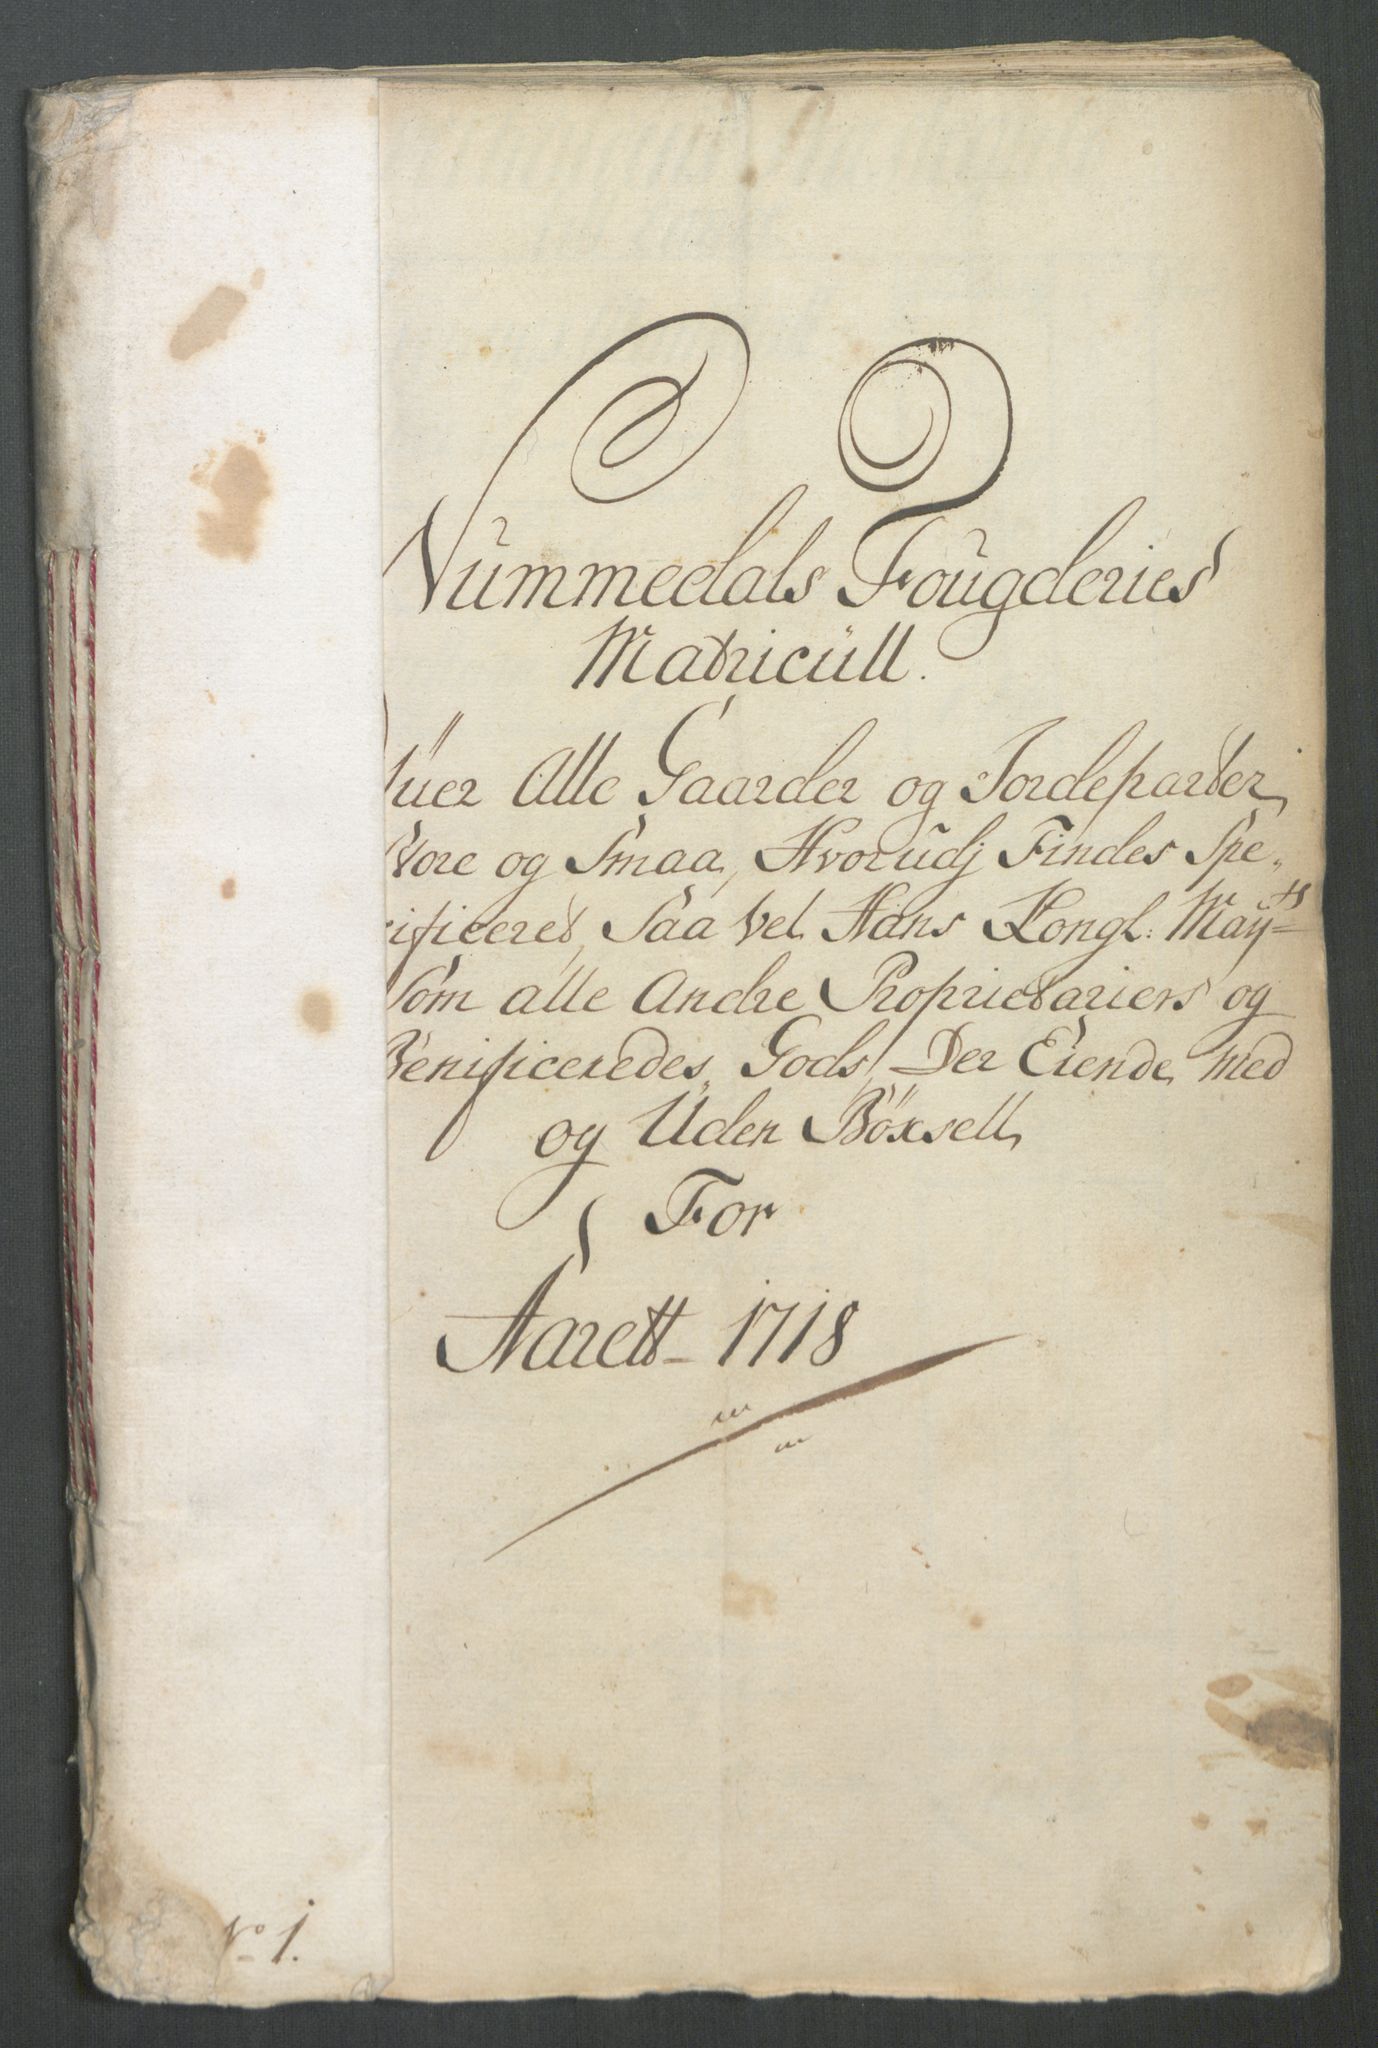 Nummedals Fougderies
Matricüll.
Ofuer Alle Gaarder og Jordeparter,
Store og Smaa, Hvorudj Findes Spe,,
cificeret, Saa vel Hans Kongl: Mayts
Som alle Andre Proprietariers og
Benificeredes Gods, Der Eiende med
og Uden Böxsell,
For
Aarett 1718
No 1.